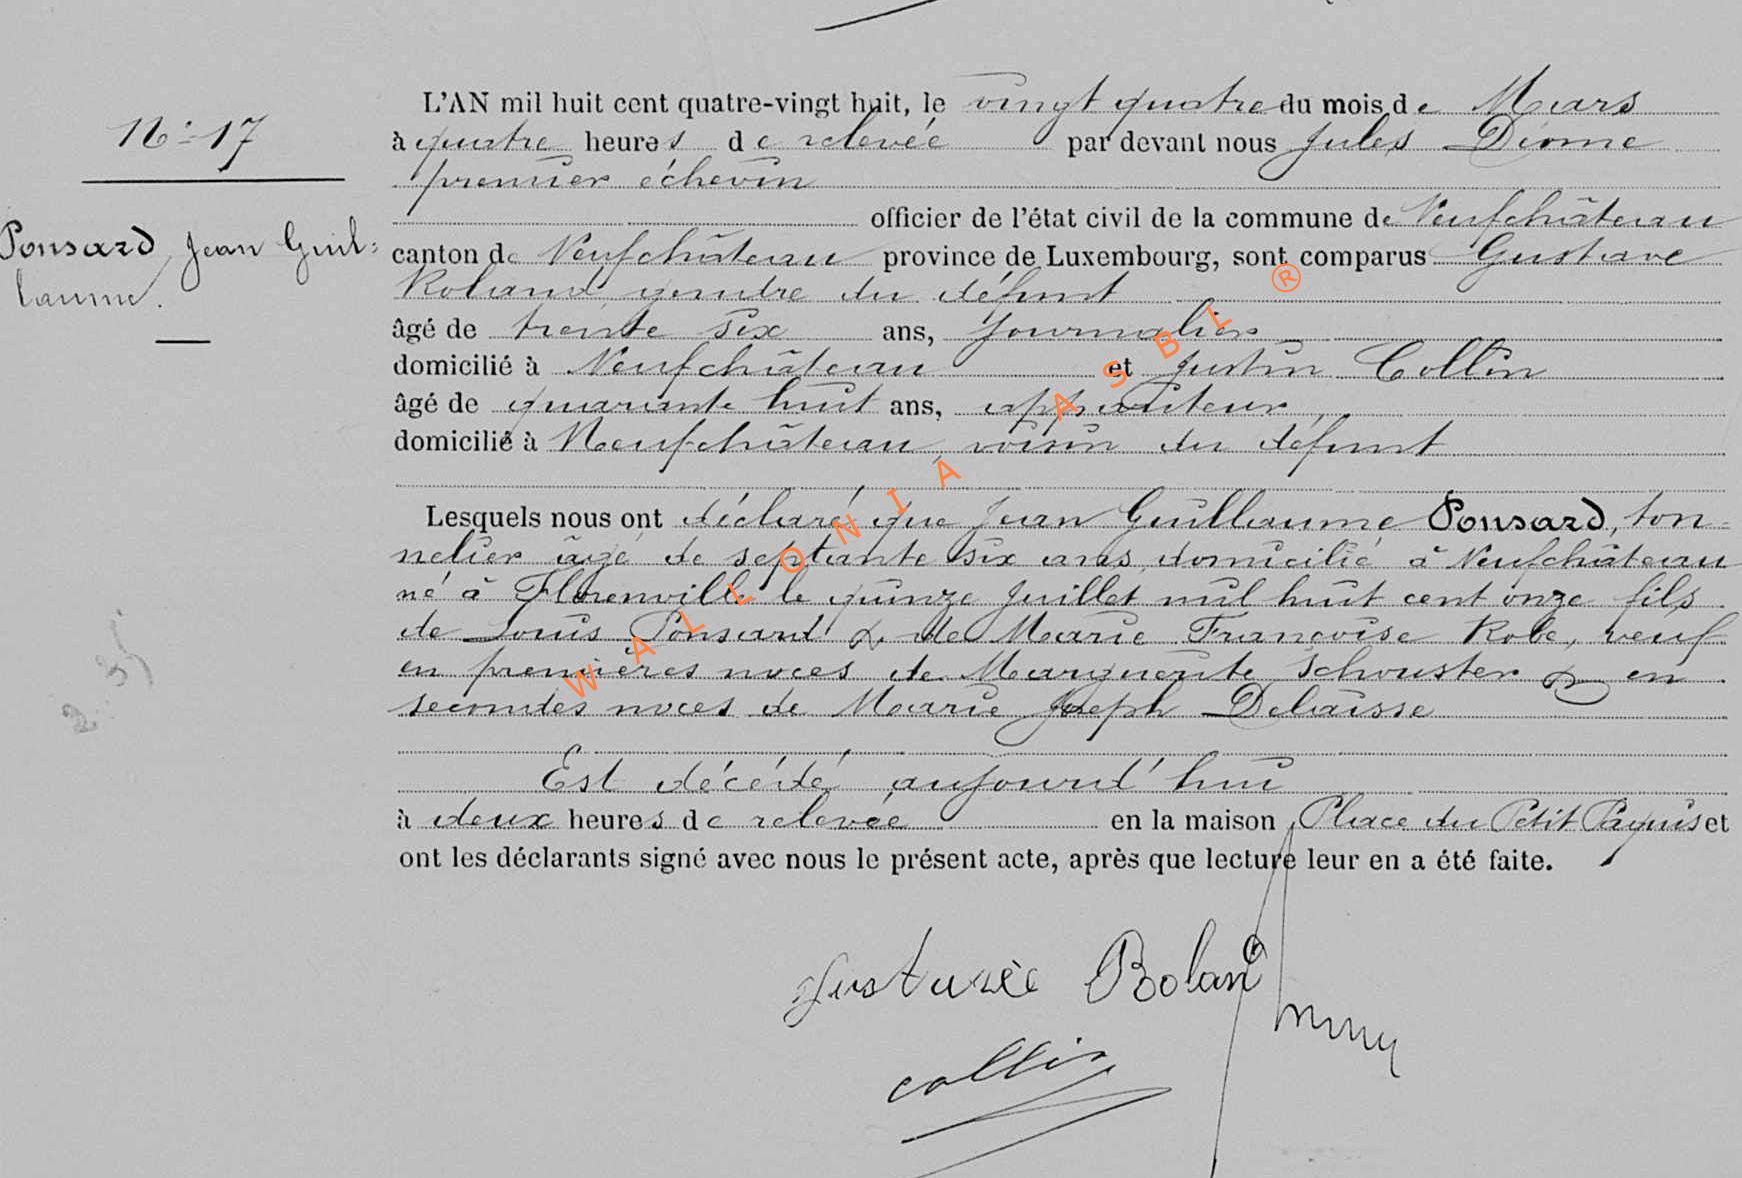 L'AN mil huit cent quatre-vingt huit, le vingt quatre du mois de Mars
N° 17
à quatre heures de relevée par devant nous Jules Diome
premier échevin
Ponsard, Jean Guil=
laume.
officier de l'état civil de la commune de Neufchâteau
canton de Neufchâteau province de Luxembourg, sont comparus Gustave
Roland, gendre du défunt
âgé de trente six ans, journalier
domicilié à Neufchâteau et Justin Collin
âgé de quarante huit ans, appariteur,
domicilié à Neufchâteau, voisin du défunt
Lesquels nous ont déclaré que Jean Guillaume Ponsard, ton=
nelier âgé de septante six ans, domicilié à Neufchâteau
né à Florenville le quinze Juillet mil huit cent onze fils
de Louis Ponsard & de Marie Françoise Robe, veuf
en premières noces de Marguerite Schouster & en
secondes noces de Marie Joseph Delaisse
Est décédé aujourd'hui
à deux heures de relevée en la maison Place du Petit Paquis et
ont les déclarants signé avec nous le présent acte, après que lecture leur en a été faite.
Gustave Rolan
Collin
WALLONIA ASBL ®